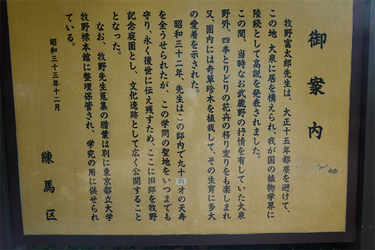 御案内
牧野富太郎先生は、大正十五年都塵を避けて、
この地 大泉に居を構えられ、我が国の植物学界に
陸続として高説を発表されました。
この間、当時なお武蔵野の抒情を有していた大泉
野外、四季とりどりの花卉の移り変りをも楽しまれ
又、園内には奇草珍木を植栽して、その生育に多大
の愛着を示された。
昭和三十二年、先生はこの邸内で九十四才の天寿
を全うせられたが、この学問の聖地をいつまでも
守り、永く後世に伝え残すため、ここに旧邸を牧野
記念庭園とし、文化遺跡として広く公開すること
となった。
なお、牧野先生蒐集の腊葉は別に東京都立大学
牧野標本館に整理保管され、学究の用に供せられ
ている。
昭和三十三年十二月
練馬区